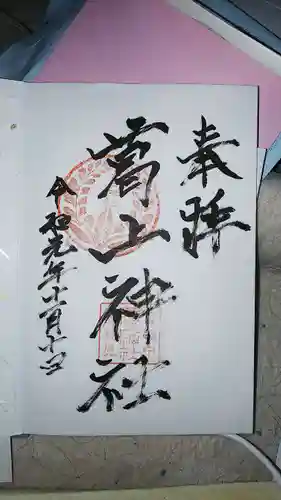 奉拝
葛山神社
令和元年十一月十六日